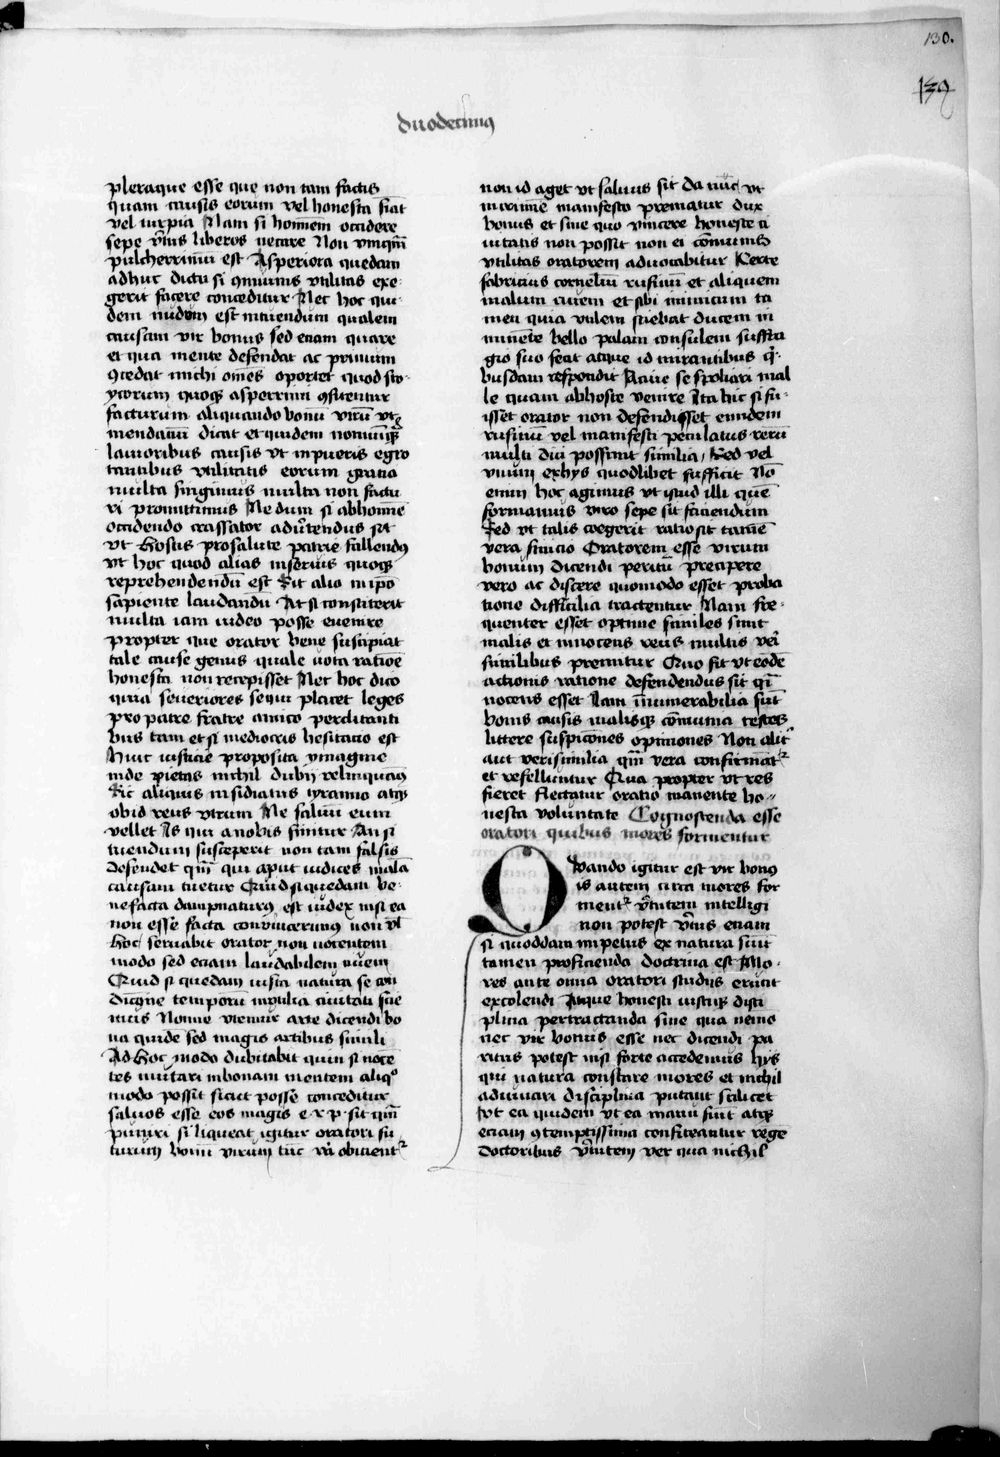 130.
139
duodecimus
pleraque esse que non tam factis
quam causis eorum vel honesta fiāt
vel turpia Nam si hominem occidere
sepe v̄tus liberos necare Non vnqm̄
pulcherrimū est Asperiora quedam
adhuc dictu si ꝯmunis vtilitas exe-
gerit facere conceditur Nec hoc qui-
dem nudum est intuendum qualem
causam vir bonus sed etiam quare
et qua mente defendat ac primum
ꝯcedat michi om̄es oportet quod sto-
ycorum quoqȝ asperrimi ꝯfitentur
facturum aliquando bonū virū vt
mendaciū dicat et quidem nonnūqȝ
leuioribus causis vt in pueris egro
tantibus vtilitatis eorum gratia
multa fingimus multa non factu
ri promittimus Nedum si ab homīe
occidendo crassator aduertendus sit
vt hostis pro salute patrie fallendꝰ
vt hoc quod alias in seruis quoqȝ
reprehendendū est Sit alio in ip̄o
sapiente laudandū At si constiterit
multa iam video posse euenire
propter que orator bene suscipiat
tale cause genus quale nota ratiōe
honesta non recepisset Nec hoc dico
quia seueriores sequi placet leges
pro patre fratre amico perclitanti
bus tam etsi mediocris hesitatio est
Hinc iusticie proposita ymagine
inde pietas nichil dubij relinquam⁹
Sit aliquis insidiatus tyranno atqȝ
ob id reus vtrum Ne saluū eum
vellet Is qui a nobis finitur An si
tuendum susceperit non tam falsis
defendet qm̄ qui aput iudices malā
causam tuetur Quid si quedam be-
nefacta dampnaturꝰ est iudex nisi ea
non esse facta conuincerimꝰ non vl̄
hoc seruabit orator non nocentem
modo sed etiam laudabilem ciuem
Quid si quedam iusta natura se con
dicione temporū inutilia ciuitati scie
mus Nonne vtemur arte dicendi bo
na quidē sed magis artibus simili
Ad hoc modo dubitabit quin si noce
tes mutari in bonam mentem aliqº
modo possit sicut posse conceditur
saluos esse eos magis e r.p. sit qm̄
puniri si liqueat igitur oratori fu
turum bonū virum tūc
non id aget vt saluus sit da nūc vt
maxime manifesto prematur dux
bonus et sine quo vincere honeste ci
uitatis non possit non ei cōmunis
vtilitas oratorem aduocabitur Certe
fabricius corneliū rufinū et aliquem
malum ciuem et sibi inimicum ta
men quia vtilem sciebat ducem in
minēte bello palam consulem suffra
gio suo fecit atque id mirantibus q̄-
busdam respondit A ciue se spoliari mal
le quam ab hoste venire Ita hic si fu-
isset orator non defendisset eumdem
rufinū vel manifesti peculatus reum
multi diū possunt similia Sed vel
vnum ex hys quodlibet sufficit Nō
enim hoc agimus vt istud illi quē
formamus viro sepe sit faciendum
Sed vt talis coegerit ratio sit tamē
vera finicio Oratorem esse virum
bonum dicendi peritū precipere
vero ac discere quomodo esset proba
tione difficilia tractentur Nam fre-
quenter esset optime similes sunt
malis et innocens reus multis vei
similibus premitur Quo fit vt eodē
actionis ratione defendendus sit qui
nocens esset Iam innumerabilia sūt
bonis causis malisqȝ cōmunia testes
littere suspiciones opiniones Non alit
aut verisimilia qm̄ vera confirmātur
et refelluntur Qua propter vt res
fieret flectatur oratio manente ho-
nesta voluntate Cognoscenda esse
oratori quibus mores formentur
Quando igitur est vir bonꝰ
is autem circa mores for
ment v̄tutem intelligi
non potest v̄tus etiam
si quoddam impetus ex natura sūit
tamen proficienda doctrina est Mo-
res ante omnia oratori studijs erūt
excolendi Atque honesti iustiqȝ disci
plina pertractanda sine qua nemo
nec vir bonus esse nec dicendi pe
ritus potest nisi forte accedemus hys
qui natura constare mores et nichil
adiuuari disciplina putant scilicet
vt ea quidem vt ea manu fiūt atqȝ
eciam ꝯtemptissima confiteantur rege
doctoribus v̄tutem ver qua nichil